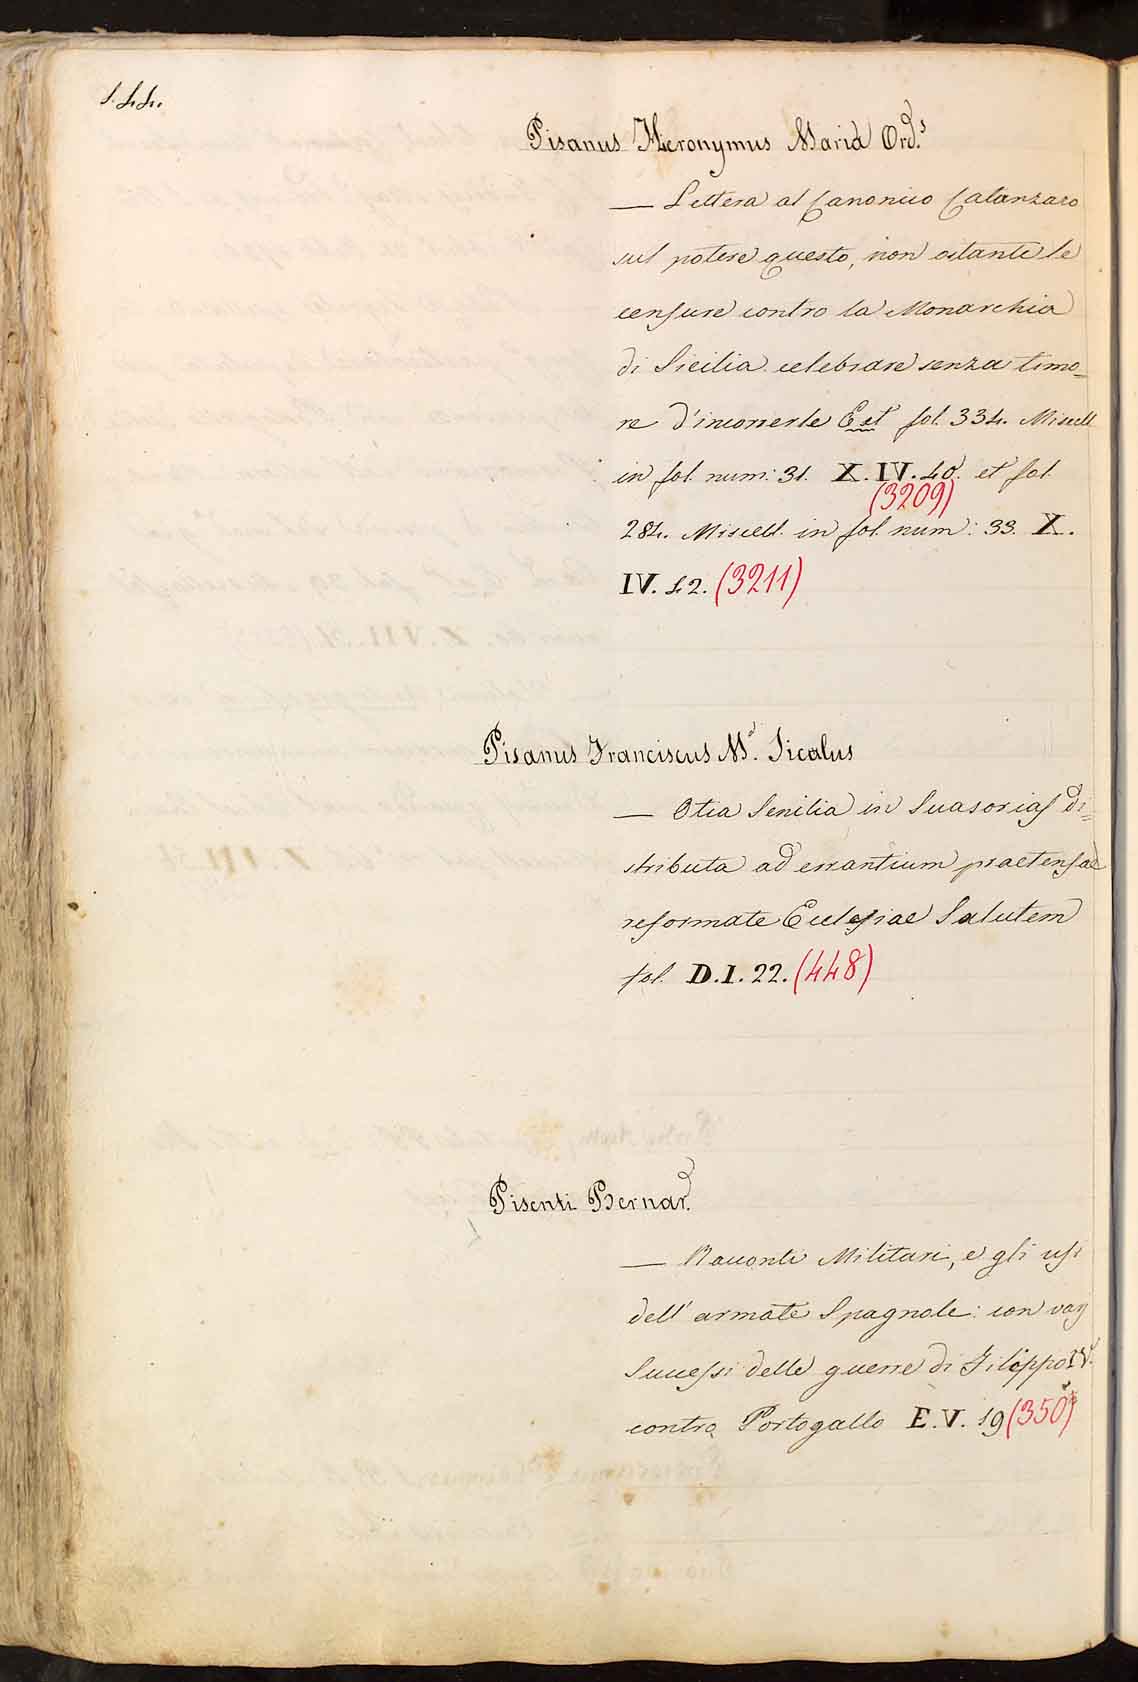 144.
Pisanus Hieronymus Maria Ord.s
— Lettera al Canonico Catanzaro
sul potere questo, non ostante le
censure contro la Monarchia
di Sicilia celebrare senza timo=
re d'incorrerle Est fol. 334. Miscell.
in fol. num: 31. X.IV.40. et fol.
(3209)
284. Miscell. in fol. num: 33. X.
IV. 42. (3211)
Pisanus Franciscus M.a Siculus
— Otia Senilia in Suasorias di=
stributa ad errantium praetensae
reformate Ecclesiae Salutem
fol. D.I. 22. (448)
Pisenti Bernard.
— Racconti Militari, e gli usi
dell' armate Spagnole: con varj
Successi delle guerre di Filippo IV.
contro Portogallo E.V. 19 (350)